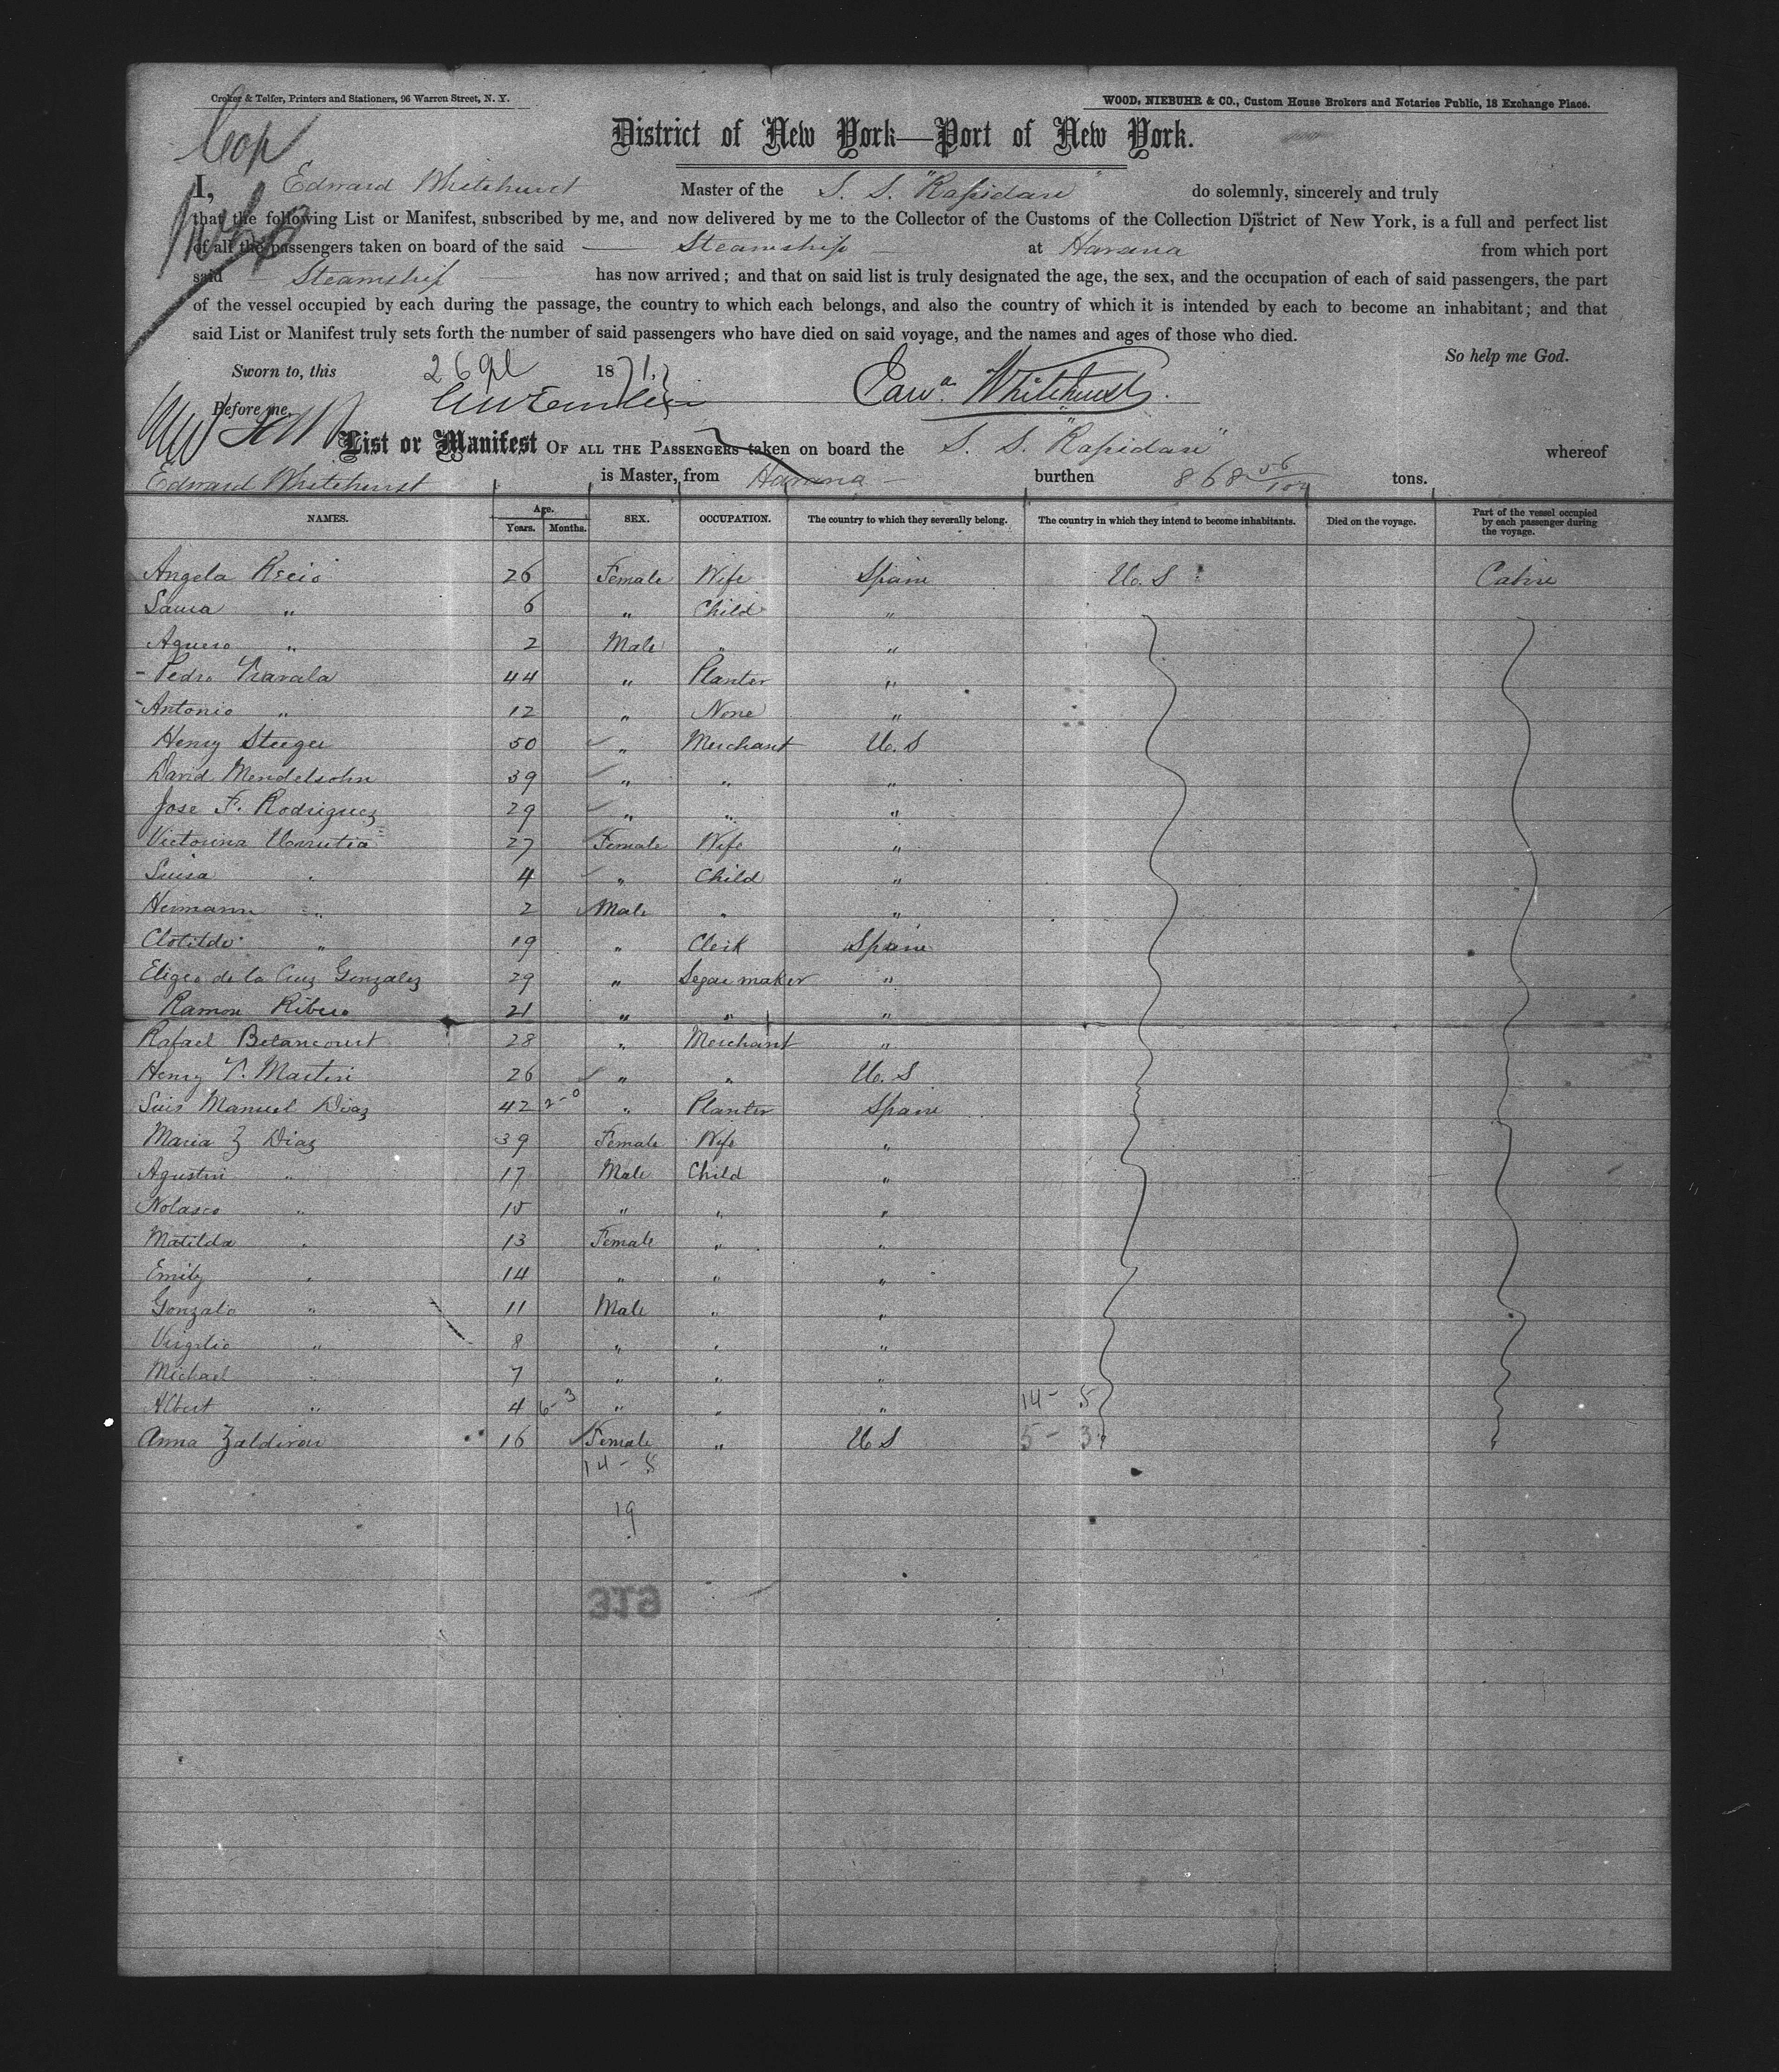 Croker & Telfer, Printers and Stationers, 96 Warren Street, N. Y.
WOOD, NIEBUHR & CO., Custom House Brokers and Notaries Public, 18 Exchange Place.
District of New York—Port of New York.
I, Edward Whitehurst Master of the S. S. "Rapidan" do solemnly, sincerely and truly
that the following List or Manifest, subscribed by me, and now delivered by me to the Collector of the Customs of the Collection District of New York, is a full and perfect list
of all the passengers taken on board of the said Steamship at Havana from which port
said Steamship has now arrived; and that on said list is truly designated the age, the sex, and the occupation of each of said passengers, the part
of the vessel occupied by each during the passage, the country to which each belongs, and also the country of which it is intended by each to become an inhabitant; and that
said List or Manifest truly sets forth the number of said passengers who have died on said voyage, and the names and ages of those who died.
So help me God.
Sworn to, this 26 1871
Edwd. Whitehurst
Before me,
List or Manifest OF ALL THE PASSENGERS taken on board the S. S. "Rapidan" whereof
Edward Whitehurst is Master, from Havana burthen 868 56/100 tons.
NAMES. Age. Years. Months. SEX. OCCUPATION. The country to which they severally belong. The country in which they intend to become inhabitants. Died on the voyage. Part of the vessel occupied by each passenger during the voyage.
Angela Recio 26 Female Wife Spain U. S Cabin
Laura " 6 " Child "
Aguero " 2 Male " "
Pedro 44 " Planter "
Antonio " 12 " None "
Henry Steeger 50 " Merchant U. S
David Mendelsohn 39 " " "
Jose F. Rodriguez 29 " " "
Victorina Urrutia 27 Female Wife "
Luisa " 4 " Child "
Hermann " 2 Male " "
Clotilde " 19 " Clerk Spain
Eligio de la Cruz Gonzalez 29 " Segar maker "
Ramon Ribero 21 " " "
Rafael Betancourt 28 " Merchant "
Henry T. Martin 26 " " U. S
Luis Manuel Diaz 42 2-0 " Planter Spain
Maria Z Diaz 39 Female Wife "
Agustin " 17 Male Child "
Nolasco " 15 " " "
Matilda " 13 Female " "
Emily " 14 " " "
Gonzalo " 11 Male " "
Virgilio " 8 " " "
Michael " 7 " " "
Albert " 4 6-3 " " " 14- 5
Anna Zaldivar 16 Female " U S 5- 3 " "
14- 5
19
319